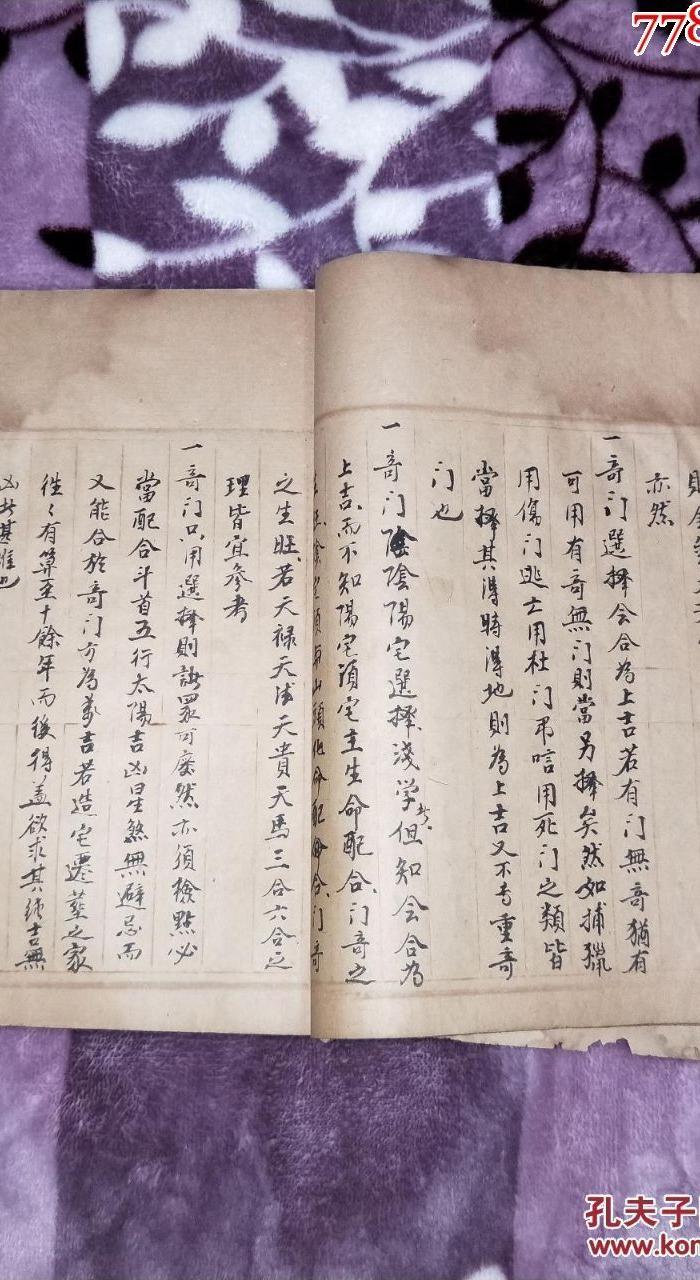 778
亦然
一奇门選擇会合為上吉若有门無奇猶有
可用有奇無门則當另擇矣然如捕獵
用傷门逃亡用杜门弔唁用死门之類皆
當擇其得時得地則為上吉又不专重奇
门也
一奇门陰陰陽宅選擇淺学者但知会合為
上吉而不知陽宅須宅主生命配合门奇之
山頭化命配合门奇
之生旺若天禄天德天貴天馬三合六合之
理皆宜參考
一奇门只用選擇則諸家可廢然亦須檢點必
當配合斗首五行太陽吉凶星煞無避忌而
又能合於奇门方為萬吉若造宅遷墓之家
徃々有算至十餘年而後得盖欲求其純吉無
凶甚難也
孔夫子
www.kon